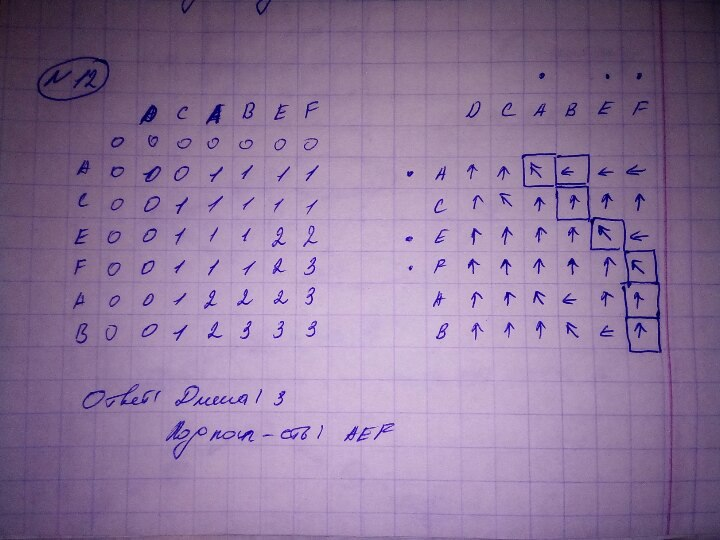 № 12
D C A B E F
0 0 0 0 0 0 0
A 0 0 0 1 1 1 1
C 0 0 1 1 1 1 1
E 0 0 1 1 1 2 2
F 0 0 1 1 1 2 3
A 0 0 1 2 2 2 3
B 0 0 1 2 3 3 3
D C A B E F
• A ↑ ↑ ↖ ← ← ←
C ↑ ↖ ↑ ↑ ↑ ↑
• E ↑ ↑ ↑ ↑ ↖ ←
• F ↑ ↑ ↑ ↑ ↑ ↖
A ↑ ↑ ↖ ← ↑ ↑
B ↑ ↑ ↑ ↖ ← ↑
Ответ: Длина: 3
Подпосл-сть: AEF